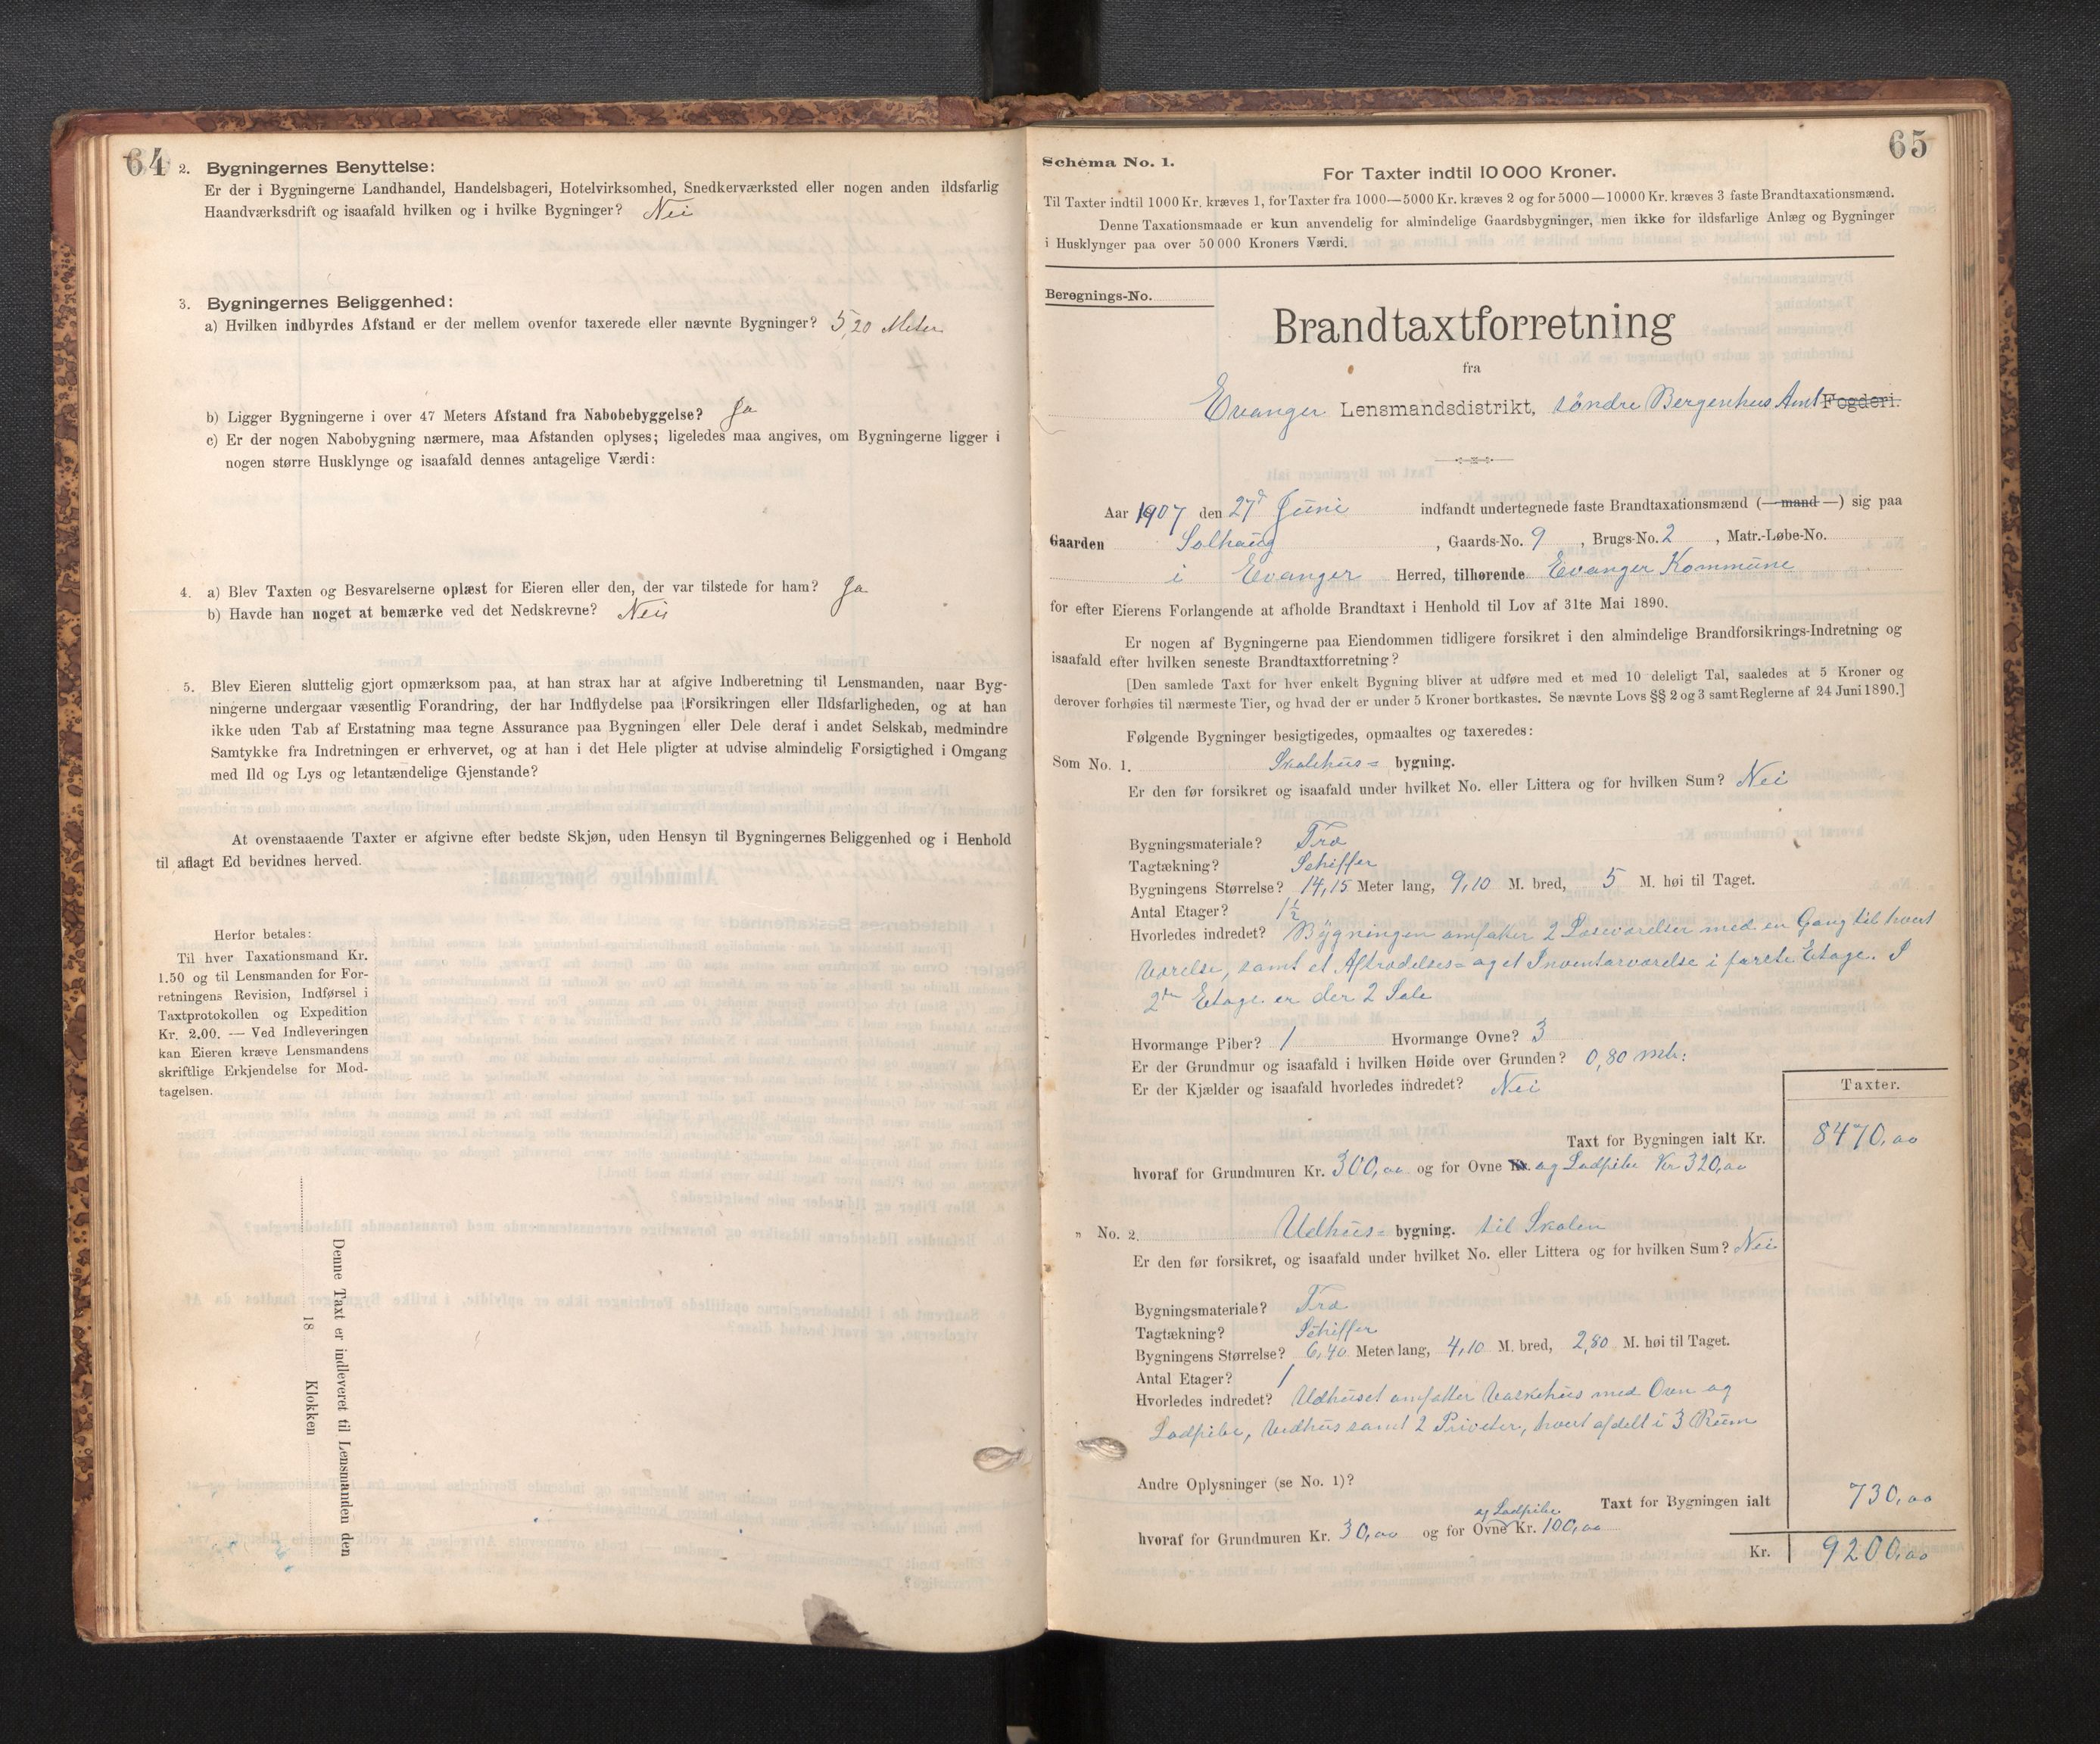 64
2. Bygningernes Benyttelse:
Er der i Bygningerne Landhandel, Handelsbageri, Hotelvirksomhed, Snedkerværksted eller nogen anden ildsfarlig
Haandværksdrift og isaafald hvilken og i hvilke Bygninger? Nei
3. Bygningernes Beliggenhed:
a) Hvilken indbyrdes Afstand er der mellem ovenfor taxerede eller nævnte Bygninger? 5,20 Meter
b) Ligger Bygningerne i over 47 Meters Afstand fra Nabobebyggelse? Ja
c) Er der nogen Nabobygning nærmere, maa Afstanden oplyses; ligeledes maa angives, om Bygningerne ligger i
nogen større Husklynge og isaafald dennes antagelige Værdi:
4. a) Blev Taxten og Besvarelserne oplæst for Eieren eller den, der var tilstede for ham? Ja
b) Havde han noget at bemærke ved det Nedskrevne? Nei
5. Blev Eieren sluttelig gjort opmærksom paa, at han strax har at afgive Indberetning til Lensmanden, naar Byg-
ningerne undergaar væsentlig Forandring, der har Indflydelse paa Forsikringen eller Ildsfarligheden, og at han
ikke uden Tab af Erstatning maa tegne Assurance paa Bygningen eller Dele deraf i andet Selskab, medmindre
Samtykke fra Indretningen er erhvervet, og at han i det Hele pligter at udvise almindelig Forsigtighed i Omgang
med Ild og Lys og letantændelige Gjenstande?
At ovenstaaende Taxter er afgivne efter bedste Skjøn, uden Hensyn til Bygningernes Beliggenhed og i Henhold
til aflagt Ed bevidnes herved.
Herfor betales:
Til hver Taxationsmand Kr.
1.50 og til Lensmanden for For-
retningens Revision, Indførsel i
Taxtprotokollen og Expedition
Kr. 2.00. — Ved Indleveringen
kan Eieren kræve Lensmandens
skriftlige Erkjendelse for Mod-
tagelsen.
Denne Taxt er indleveret til Lensmanden den
18 Klokken
65
Schema No. 1.
For Taxter indtil 10 000 Kroner.
Til Taxter indtil 1000 Kr. kræves 1, for Taxter fra 1000—5000 Kr. kræves 2 og for 5000—10000 Kr. kræves 3 faste Brandtaxationsmænd.
Denne Taxationsmaade er kun anvendelig for almindelige Gaardsbygninger, men ikke for ildsfarlige Anlæg og Bygninger
i Husklynger paa over 50 000 Kroners Værdi.
Beregnings-No.
Brandtaxtforretning
fra
Evanger Lensmandsdistrikt, söndre Bergenhus Amt Fogderi.
Aar 1907 den 27d Juni indfandt undertegnede faste Brandtaxationsmænd (—mand—) sig paa
Gaarden Solhaug, Gaards-No. 9, Brugs-No. 2, Matr.-Løbe-No.
i Evanger Herred, tilhørende Evanger Kommune
for efter Eierens Forlangende at afholde Brandtaxt i Henhold til Lov af 31te Mai 1890.
Er nogen af Bygningerne paa Eiendommen tidligere forsikret i den almindelige Brandforsikrings-Indretning og
isaafald efter hvilken seneste Brandtaxtforretning?
[Den samlede Taxt for hver enkelt Bygning bliver at udføre med et med 10 deleligt Tal, saaledes at 5 Kroner og
derover forhøies til nærmeste Tier, og hvad der er under 5 Kroner bortkastes. Se nævnte Lovs §§ 2 og 3 samt Reglerne af 24 Juni 1890.]
Følgende Bygninger besigtigedes, opmaaltes og taxeredes:
Som No. 1. Skolehus= bygning.
Er den før forsikret og isaafald under hvilket No. eller Littera og for hvilken Sum? Nei
Bygningsmateriale? Træ
Tagtækning? Schiffer
Bygningens Størrelse? 14,15 Meter lang, 9,10 M. bred, 5 M. høi til Taget.
Antal Etager? 1 1/2
Hvorledes indredet? Bygningen omfatter 2 Læseværelser med en Gang til hvert
Værelse, samt et Aftrædelses= og et Inventarværelse i første Etage. I
2den Etage er der 2 Sale
Hvormange Piber? 1 Hvormange Ovne? 3
Er der Grundmur og isaafald i hvilken Høide over Grunden? 0,80 mtr:
Er der Kjælder og isaafald hvorledes indredet? Nei
Taxter.
Taxt for Bygningen ialt Kr. 8470,00
hvoraf for Grundmuren Kr. 300,00 og for Ovne Kr. og Ladpibe Kr 320,00
" No. 2. Udhus= bygning. til Skolen
Er den før forsikret, og isaafald under hvilket No. eller Littera og for hvilken Sum? Nei
Bygningsmateriale? Træ
Tagtækning? Schiffer
Bygningens Størrelse? 6,40 Meter lang, 4,10 M. bred, 2,80 M. høi til Taget.
Antal Etager? 1
Hvorledes indredet? Udhuset omfatter Vaskehus med Oven og
Ladpibe, Vedhus samt 2 Priveter, hvert afdelt i 3 Rum
Andre Oplysninger (se No. 1)?
Taxt for Bygningen ialt 730,00
og Ladpibe
hvoraf for Grundmuren Kr. 30,00 og for Ovne Kr. 100,00
Kr. 9200,00